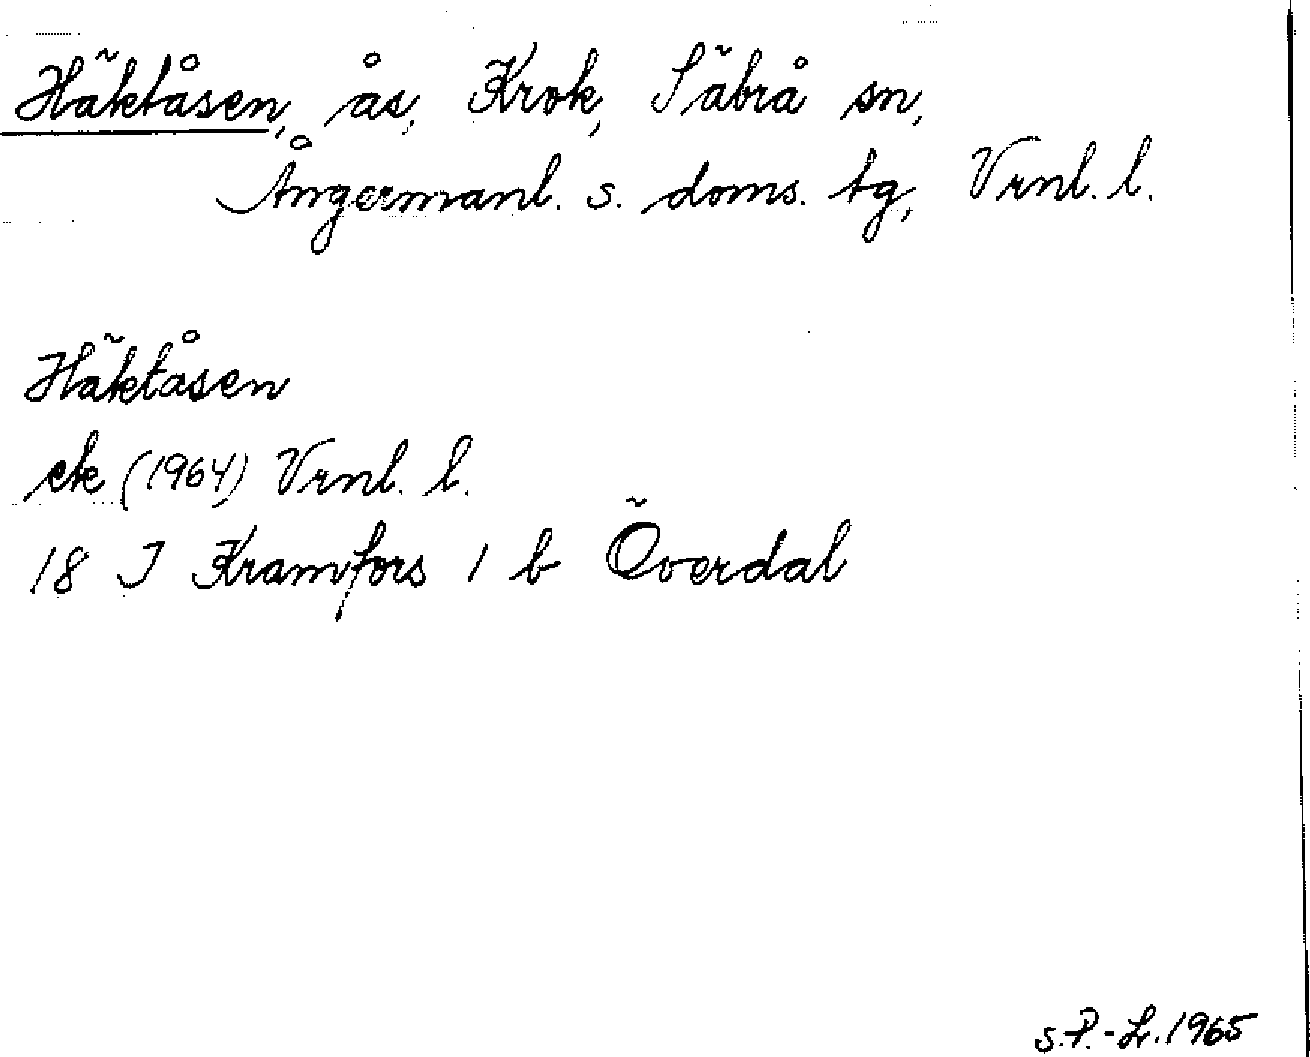 Häktåsen, ås, Krok, Säbrå sn,
Ångermanl. s. doms. tg, Vrnl. l.
Häktåsen
ek (1964) Vrnl. l.
18 J Kramfors 1 b Överdal
S.P.-Lr. 1965